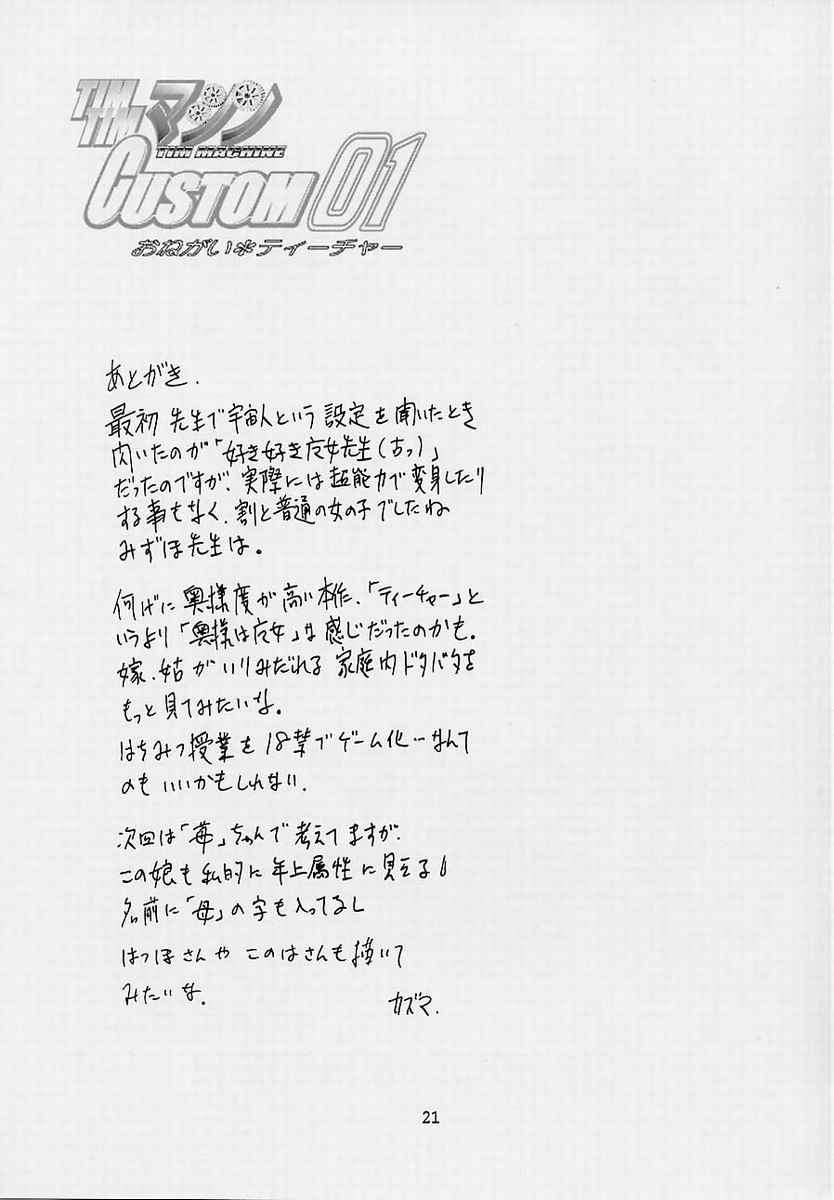 TIM
TIM マシン
TIM MACHINE
CUSTOM 01
おねがい*ティーチャー
あとがき.
最初 先生で宇宙人という 設定を聞いたとき
浮いたのが「好き好き魔女先生(古っ)」
だったのですが、実際には超能力で変身したり
する事もなく、割と普通の女の子でしたね
みずほ先生は。
何げに 奥様度が高い本作、「ティーチャー」と
いうより「奥様は魔女」な感じだったのかも。
嫁、姑がいりみだれる 家庭内ドタバタを
もっと見てみたいな。
はちみつ授業を 18禁でゲーム化…なんて
のもいいかもしれない.
次回は「苺」ちゃんで考えてますが、
この娘も私的に年上属性に見える
名前に「母」の字も入ってるし
はつほさんや このはさんも描いて
みたいな。
カズマ.
21